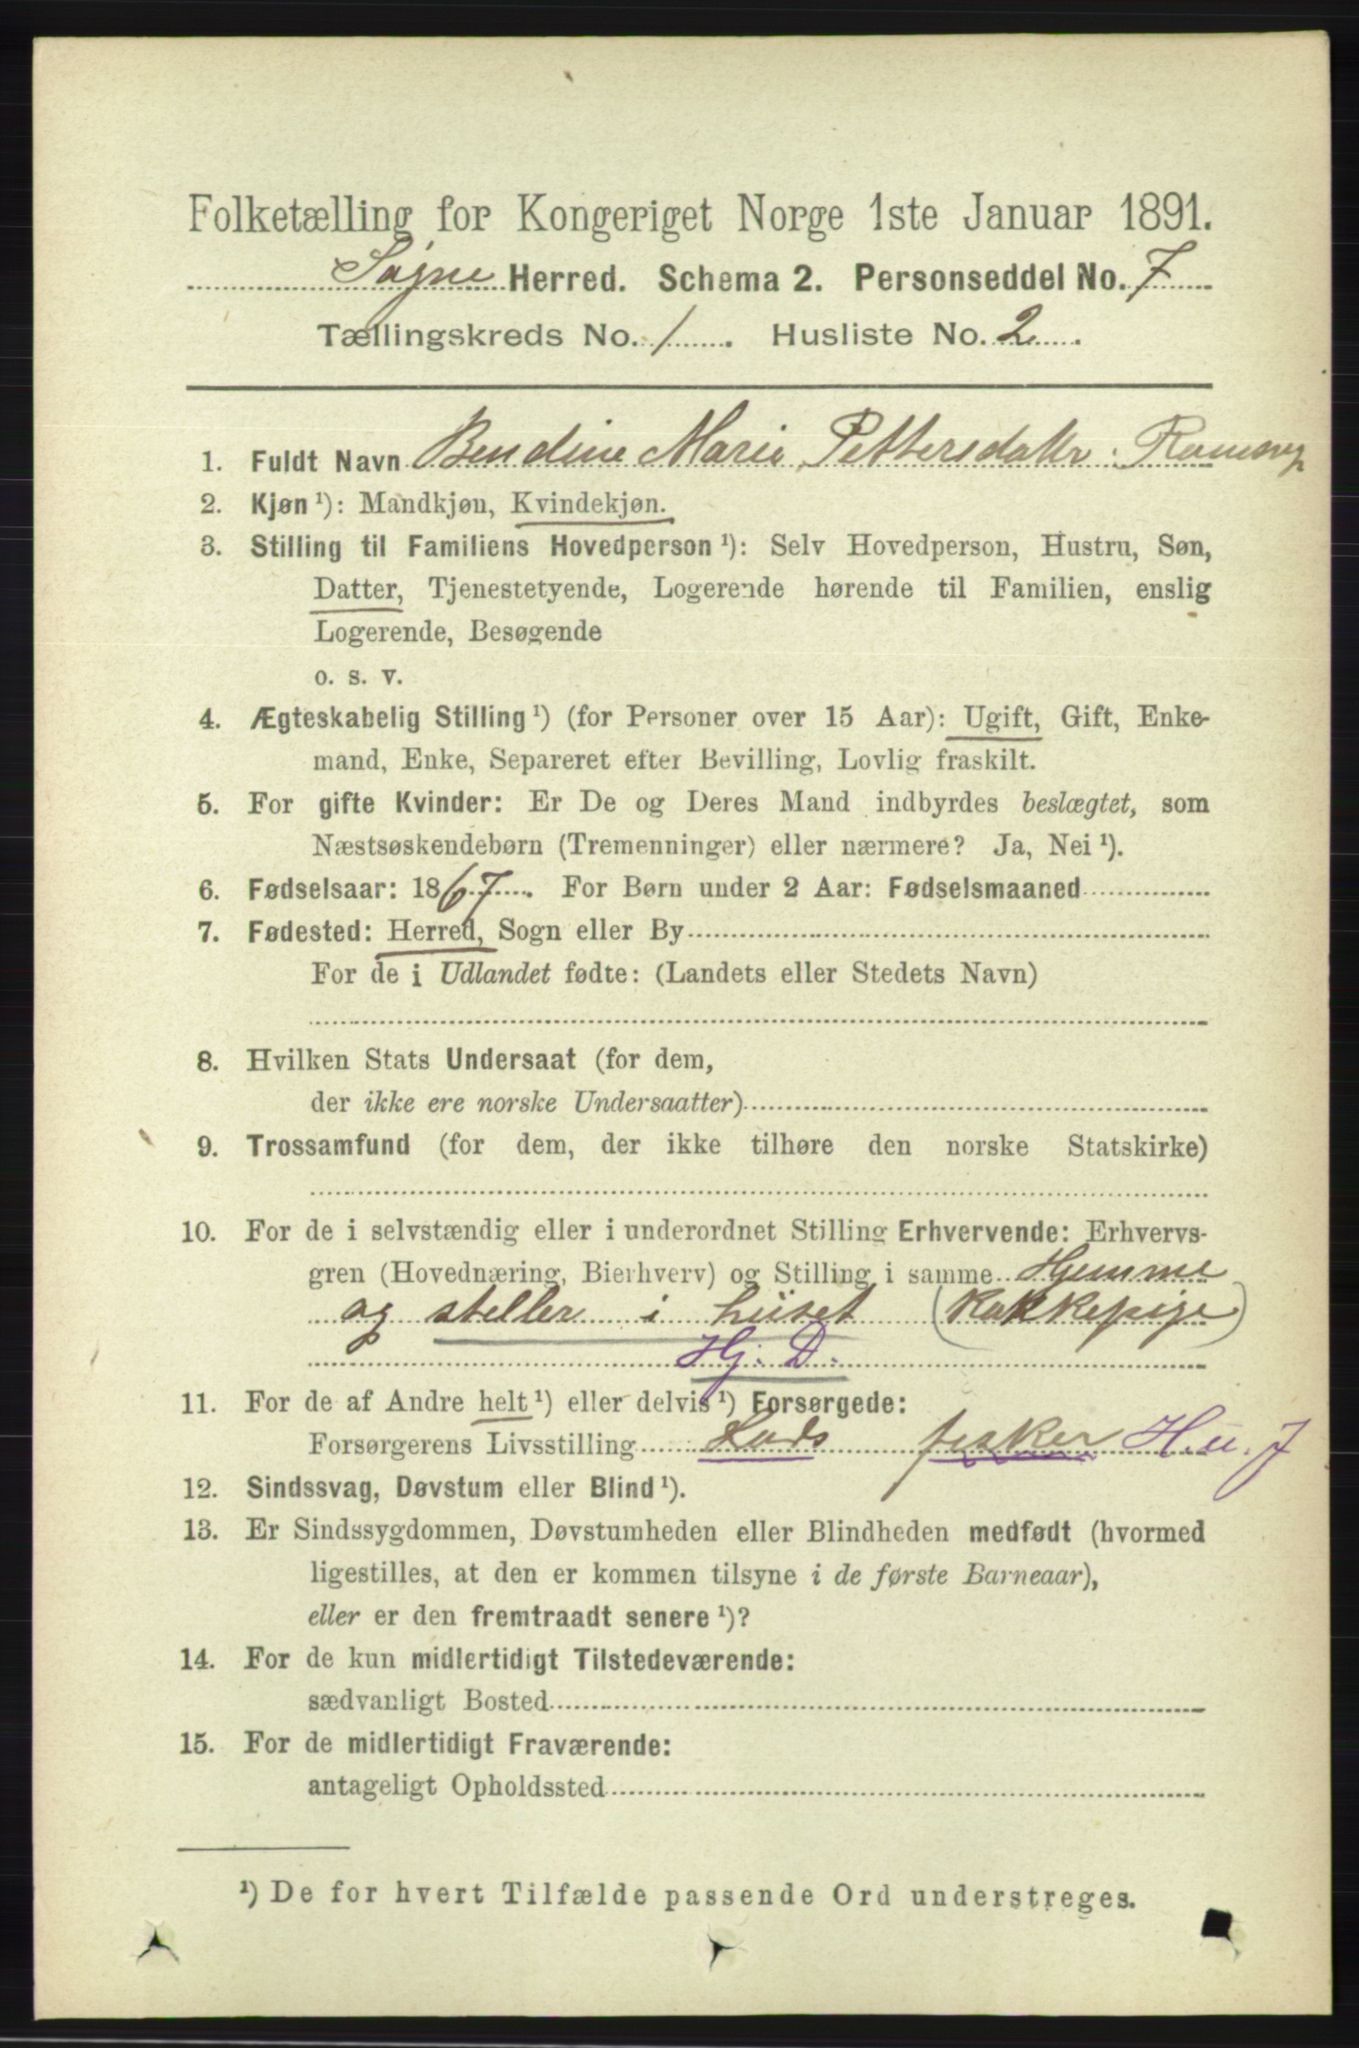 Folketælling for Kongeriget Norge 1ste Januar 1891.
Søgne Herred. Schema 2. Personseddel No. 7
Tællingskreds No. 1. Husliste No. 2.
1. Fuldt Navn Bendine Marie Pettersdatr. Romsøy
2. Kjøn ¹): Mandkjøn, Kvindekjøn.
3. Stilling til Familiens Hovedperson ¹): Selv Hovedperson, Hustru, Søn,
Datter, Tjenestetyende, Logerende hørende til Familien, enslig
Logerende, Besøgende
o. s. v.
4. Ægteskabelig Stilling ¹) (for Personer over 15 Aar): Ugift, Gift, Enke-
mand, Enke, Separeret efter Bevilling, Lovlig fraskilt.
5. For gifte Kvinder: Er De og Deres Mand indbyrdes beslægtet, som
Næstsøskendebørn (Tremenninger) eller nærmere? Ja, Nei ¹).
6. Fødselsaar: 1867. For Børn under 2 Aar: Fødselsmaaned
7. Fødested: Herred, Sogn eller By
For de i Udlandet fødte: (Landets eller Stedets Navn)
8. Hvilken Stats Undersaat (for dem,
der ikke ere norske Undersaatter)
9. Trossamfund (for dem, der ikke tilhøre den norske Statskirke)
10. For de i selvstændig eller i underordnet Stilling Erhvervende: Erhvervs-
gren (Hovednæring, Bierhverv) og Stilling i samme Hjemme
og steller i huset (Kokkepige)
Hj. D.
11. For de af Andre helt ¹) eller delvis ¹) Forsørgede:
Forsørgerens Livsstilling Lods fisker H. u. J
12. Sindssvag, Døvstum eller Blind ¹).
13. Er Sindssygdommen, Døvstumheden eller Blindheden medfødt (hvormed
ligestilles, at den er kommen tilsyne i de første Barneaar),
eller er den fremtraadt senere ¹)?
14. For de kun midlertidigt Tilstedeværende:
sædvanligt Bosted
15. For de midlertidigt Fraværende:
antageligt Opholdssted
¹) De for hvert Tilfælde passende Ord understreges.